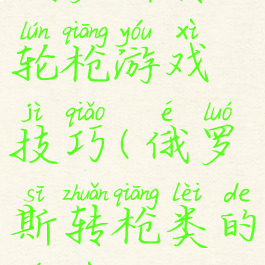 lún qiāng yóu xì
轮枪游戏
jì qiǎo é luó
技巧(俄罗
sī zhuǎn qiāng lèi de
斯转枪类的